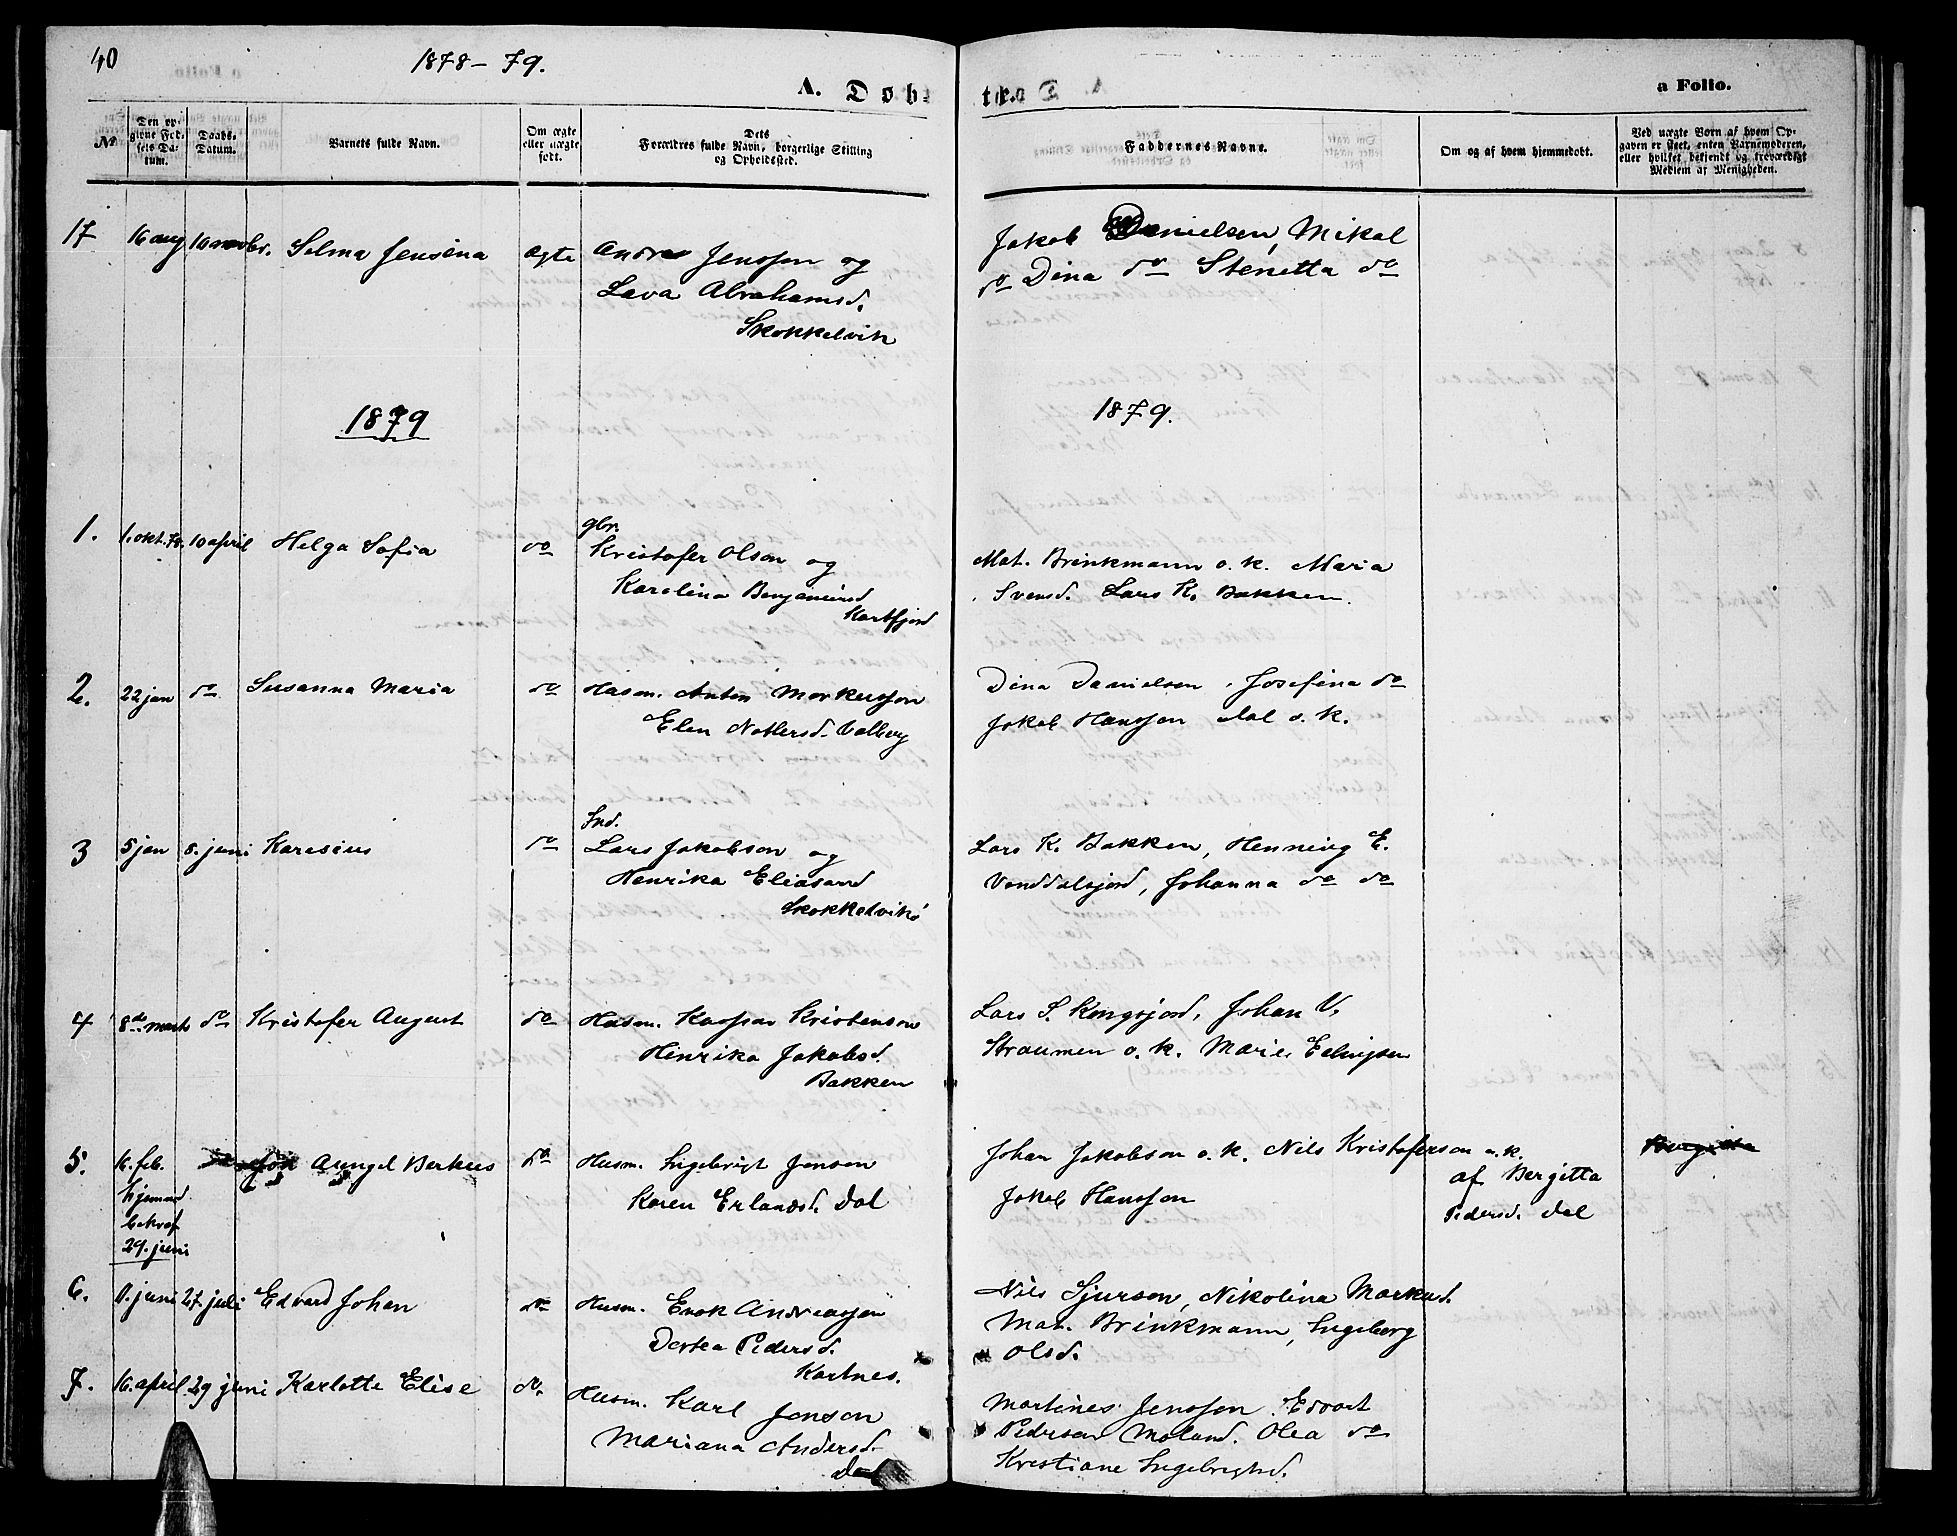 40
1878-79.
A. Døb-
te.
a Folio.
№
Den op-
givne Fød-
sels Da-
tum.
Daabs-
Datum.
Barnets fulde Navn.
Om ægte
eller uægte
født.
Dets
Forældres fulde Navn, borgerlige Stilling
og Opholdssted.
Faddernes Navne.
Om og af hvem hjemmedøbt.
Ved uægte Børn af hvem Op-
gaven er skeet, enten Barnemoderen,
eller hvilket bekjendt og troværdigt
Medlem af Menigheden.
17 16 aug 10 novbr. Selma Jensina ægte Andreas Jenssen og
Lava Abrahamsd.
Skokkelvik
Jakob Danielsen, Mikal
do Dina do Stenetta do
1879
1879.
1. 1. okt. 78. 10 april Helga Sofia do gbr.
Kristofer Olson og
Karolina Benjaminsd
Kartfjord
Mat. Brinkmann o. k. Maria
Svensd. Lars K. Bakken.
2. 22 jan do Susanna Maria do Husm. Anton Markussen
Elen Nottersd. Valberg
Dina Danielsen, Josefina do
Jakob Hanssen dal o. k.
3 5 jan 8. juni Karesius do Ind.
Lars Jakobson og
Henrika Eliasasd
Skokkelvik
Lars K. Bakken, Henning E.
Vanddalsjord, Johanna do do
4 8de marts do Kristofer August do Husm. Kaspar Kristenson
Hinrika Jakobsd.
Bakken
Lars S. Kongsjord, Johan V.
Straumen o. k. Marie Edingsen
5. 16. feb.
hjemmed
bekræf
29. juni
Aungel Berkus do Husm. Ingebrigt Jenson
Karen Erlandsd. Dal
Johan Jakobson o. k. Nils Kristoferson o. k.
Jakob Hanssen
af Bergitta
Pedersd. dal
6. juni 27 juli Edvard Johan do Husm. Enok Andreassen
Dortea Pedersd.
Kartnes.
Nils Sjurson, Nikolina Markusd.
Mat. Brinkmann, Ingeborg
Olsd.
7. 16. april 29 juni Karlotte Elise do. Husm. Karl Jenson
Mariana Andersd.
Dal
Martines Jenssen. Edvart
Pederson Moland. Olea do
Kristiane Ingebrigtsd.